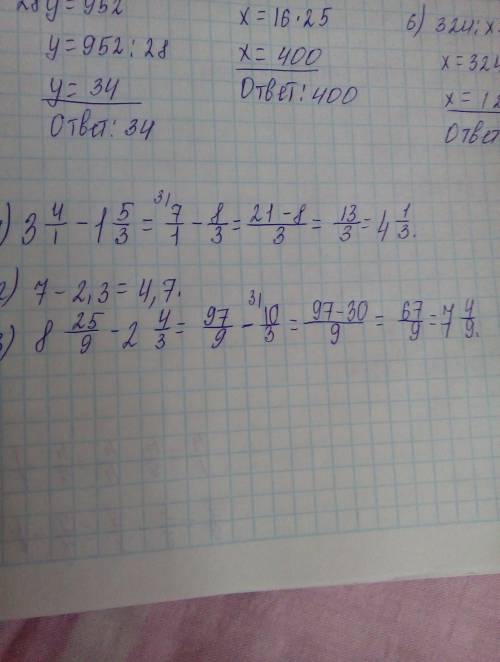 28y = 952
y = 952 : 28
y = 34
Ответ: 34
x = 16 · 25
x = 400
Ответ: 400
6) 324 : x
x = 324
x = 12
Ответ
) 3 4/1 - 1 5/3 = 3) 7/1 - 8/3 = 21 - 8/3 = 13/3 = 4 1/3.
2) 7 - 2,3 = 4,7.
3) 8 25/9 - 2 4/3 = 97/9 - 3) 10/3 = 97 - 30/9 = 67/9 = 7 4/9.